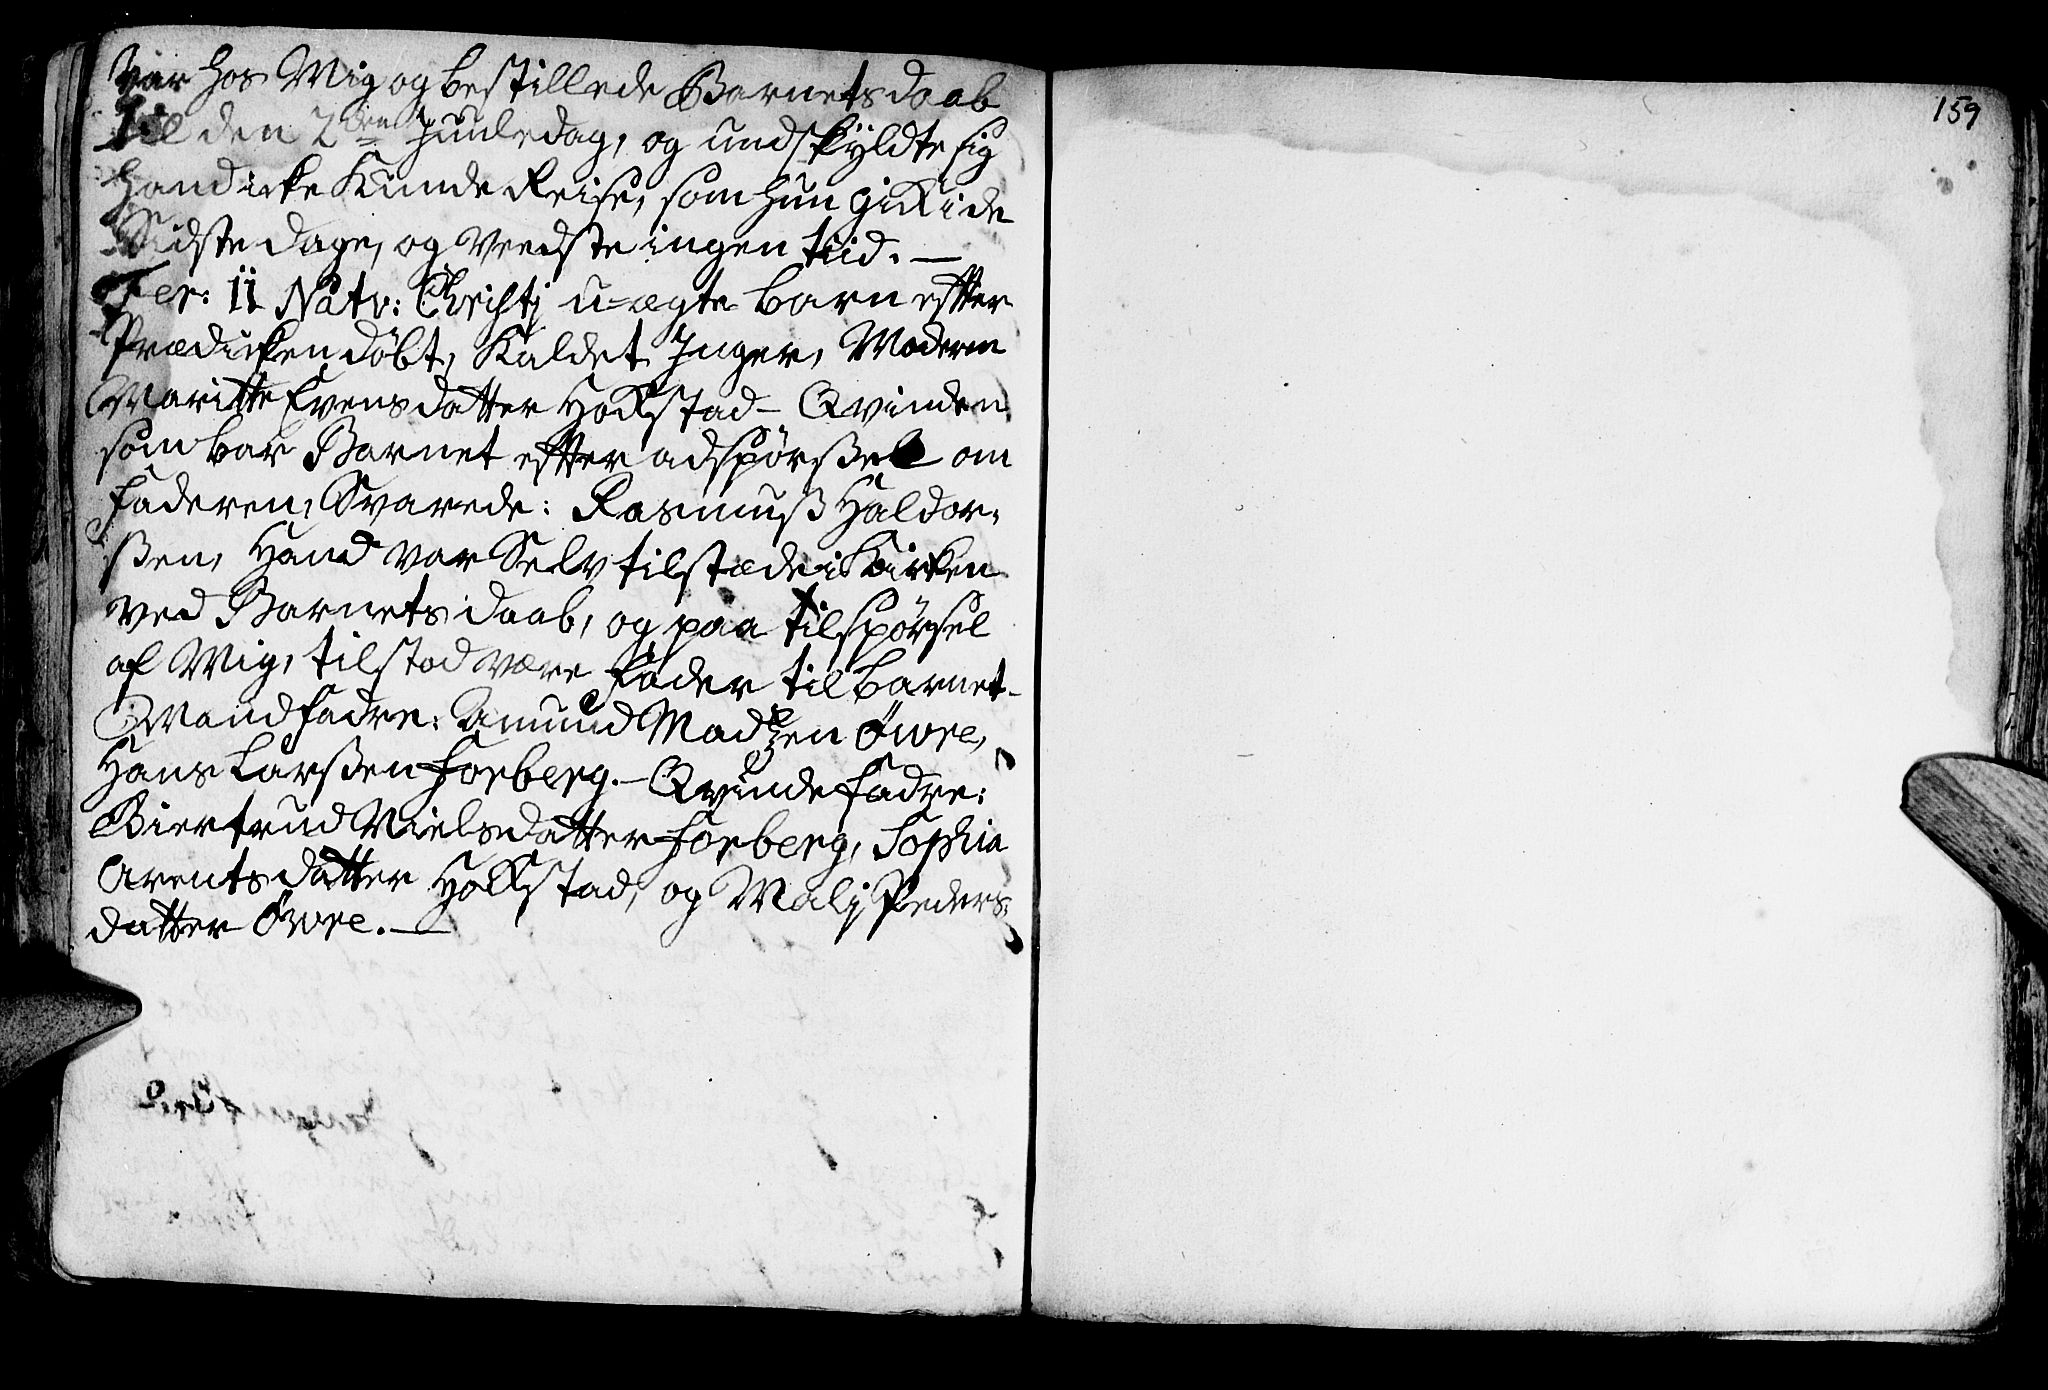 var hos Mig og bestillede Barnets daab
til den 2den Juuledag, og undskyldte sig
hand icke kunde Reise, som hun gick i de
Sidste dage, og veedste ingen tiid. —
Fer: II Nativ: Christj u-ægte barn effter
Prædicken døbt, Kaldet Inger, Moderen
Maritte Evensdatter Hockstad - Qvinden
som bar Barnet effter adspørßel om
faderen, Svarede: Rasmuß Haldor-
ßen, Hand var Selv tilstæde i Kircken
ved Barnets daab, og paa tilspørsel
af Mig, tilstod være fader til barnet-
Mandfadre: Amund Madzen Øwre,
Hans Larßen Forberg. - Qvindefadre:
Giertrud Nielsdatter Forberg, Sophia
Arentsdatter Hockstad, og Malj Peders-
datter Øwre. —
159